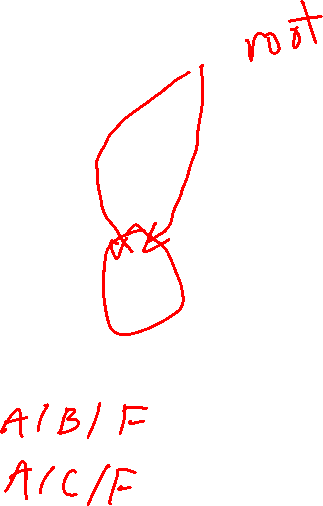 root
A/B/F
A/C/F